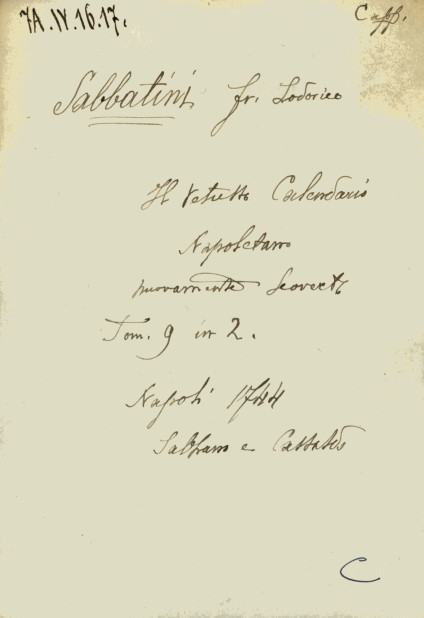 7A.IV.16.17.
Capp.
Sabbatini fr. Lodovico
Il Vetusto Calendario
Napoletano
nuovamente scoverto
Tom. 9 in 2.
Napoli 1744
e
C